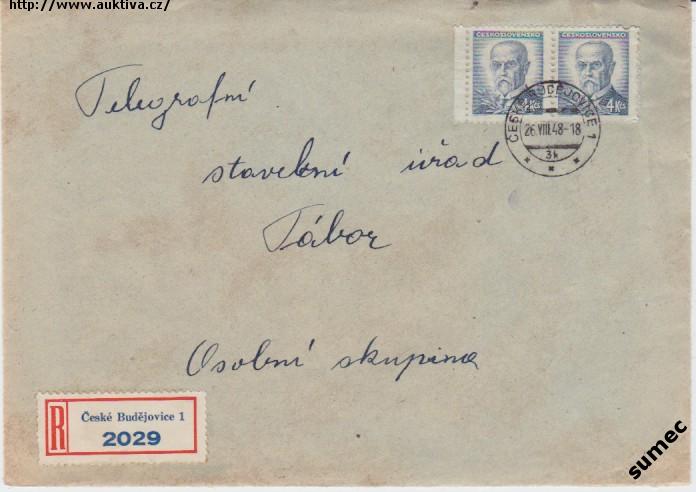 http://www.auktiva.cz/
ČESKOSLOVENSKO ČESKOSLOVENSKO
4Kčs 4Kčs
ČESKÉ BUDĚJOVICE 1
26.VIII.48-18
3k
Telegrafní
stavební úřad
Tábor
Osobní skupina
R
České Budějovice 1
2029
sumec